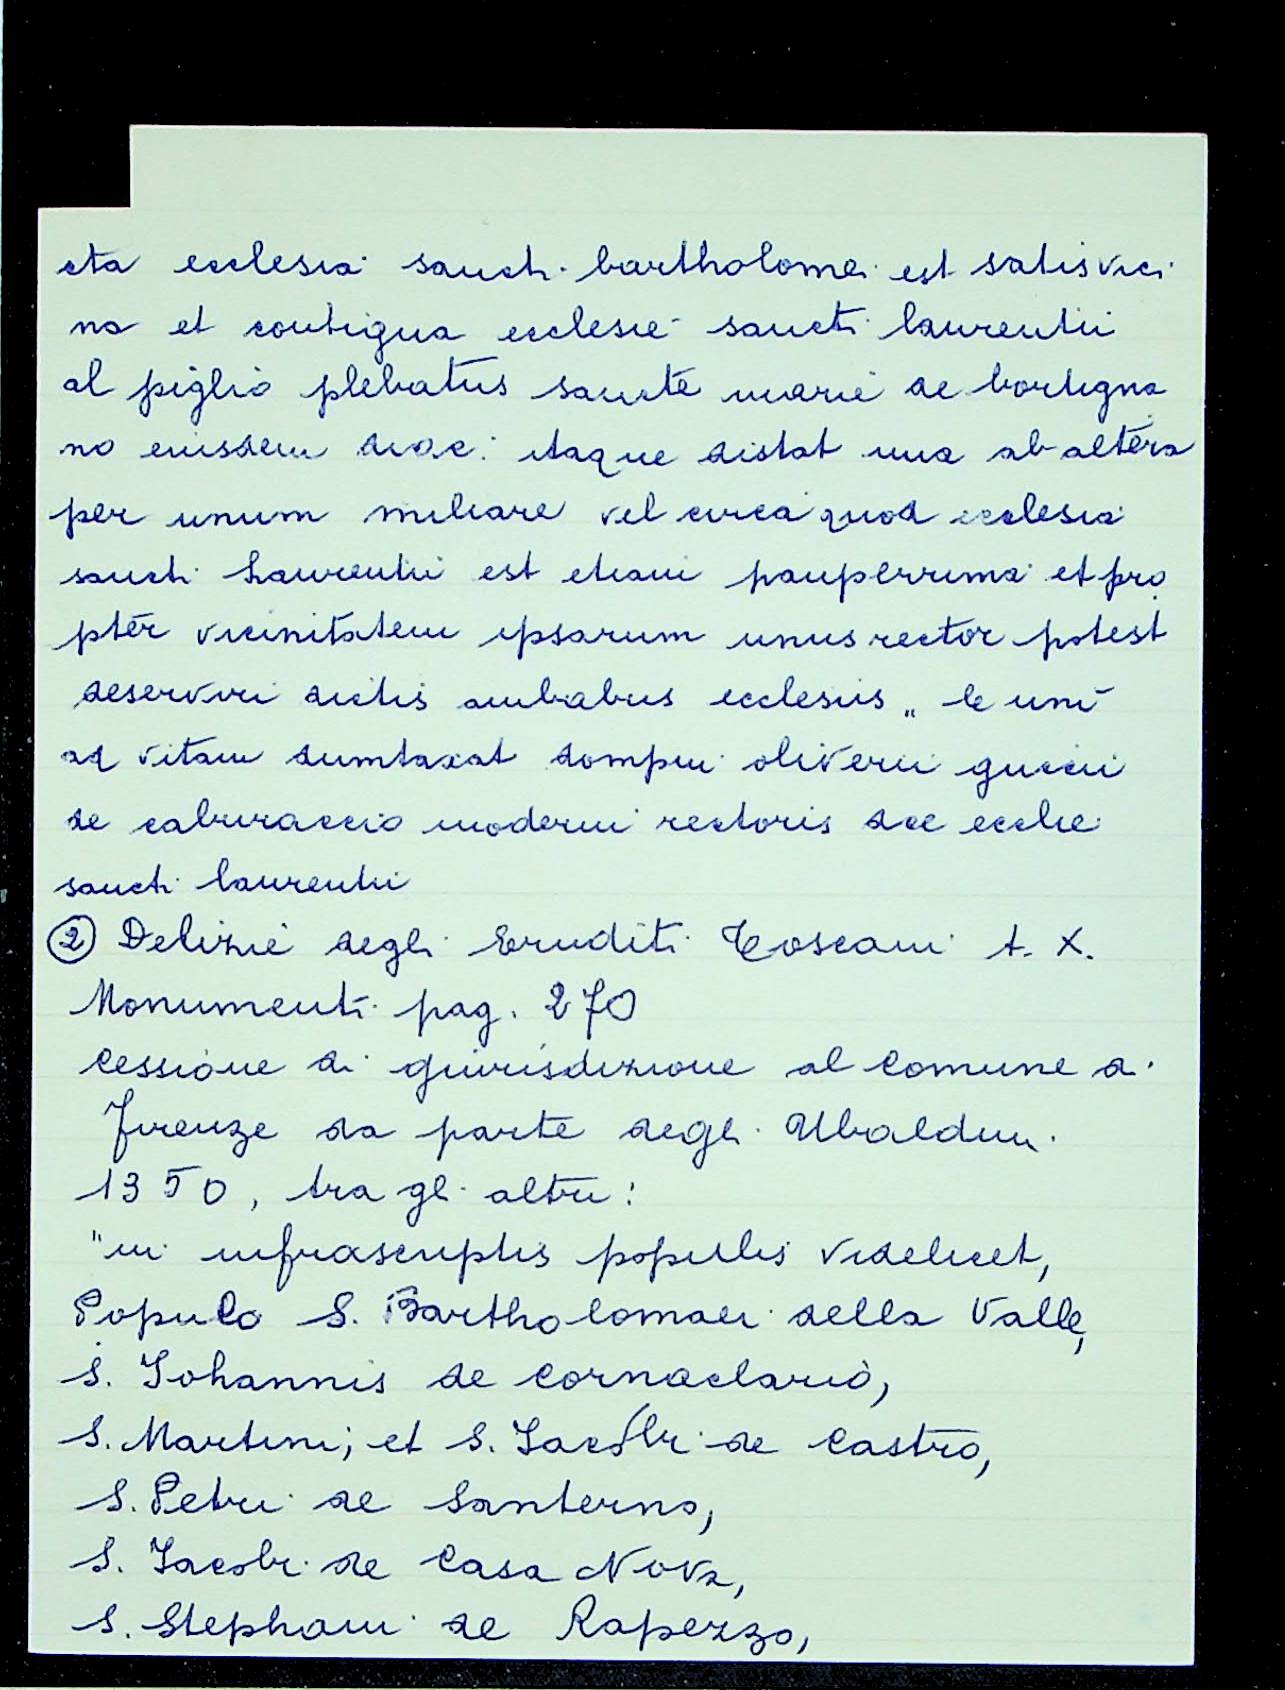 cta ecclesia sancti bartholomei est satis vici
na et contigua ecclesie sancti laurentii
al piglio plebatus sancte marie de bortigna
no eiusdem dioc. itaque distat una ab altera
per unum miliare vel circa quod ecclesia
sancti Laurentii est etiam pauperrima et pro
pter vicinitatem ipsarum unus rector potest
deserviri dictis ambabus ecclesiis „ le uni
ad vitam dumtaxat dompni oliverii guccii
de cabruraccio moderni rectoris dce ecclie
sancti laurentii
② Delizie degli Eruditi Toscani t. X.
Monumenti pag. 270
Cessione di giurisdizione al Comune di
Firenze da parte degli Ubaldini
1350, tra gli altri:
"in infrascriptis populis videlicet,
Populo S. Bartholomaei della Valle,
S. Johannis de Cornaclario,
S. Martini; et S. Jacobi de Castro,
S. Petri de Santerno,
S. Jacobi de Casa Nova,
S. Stephani de Rapezzo,